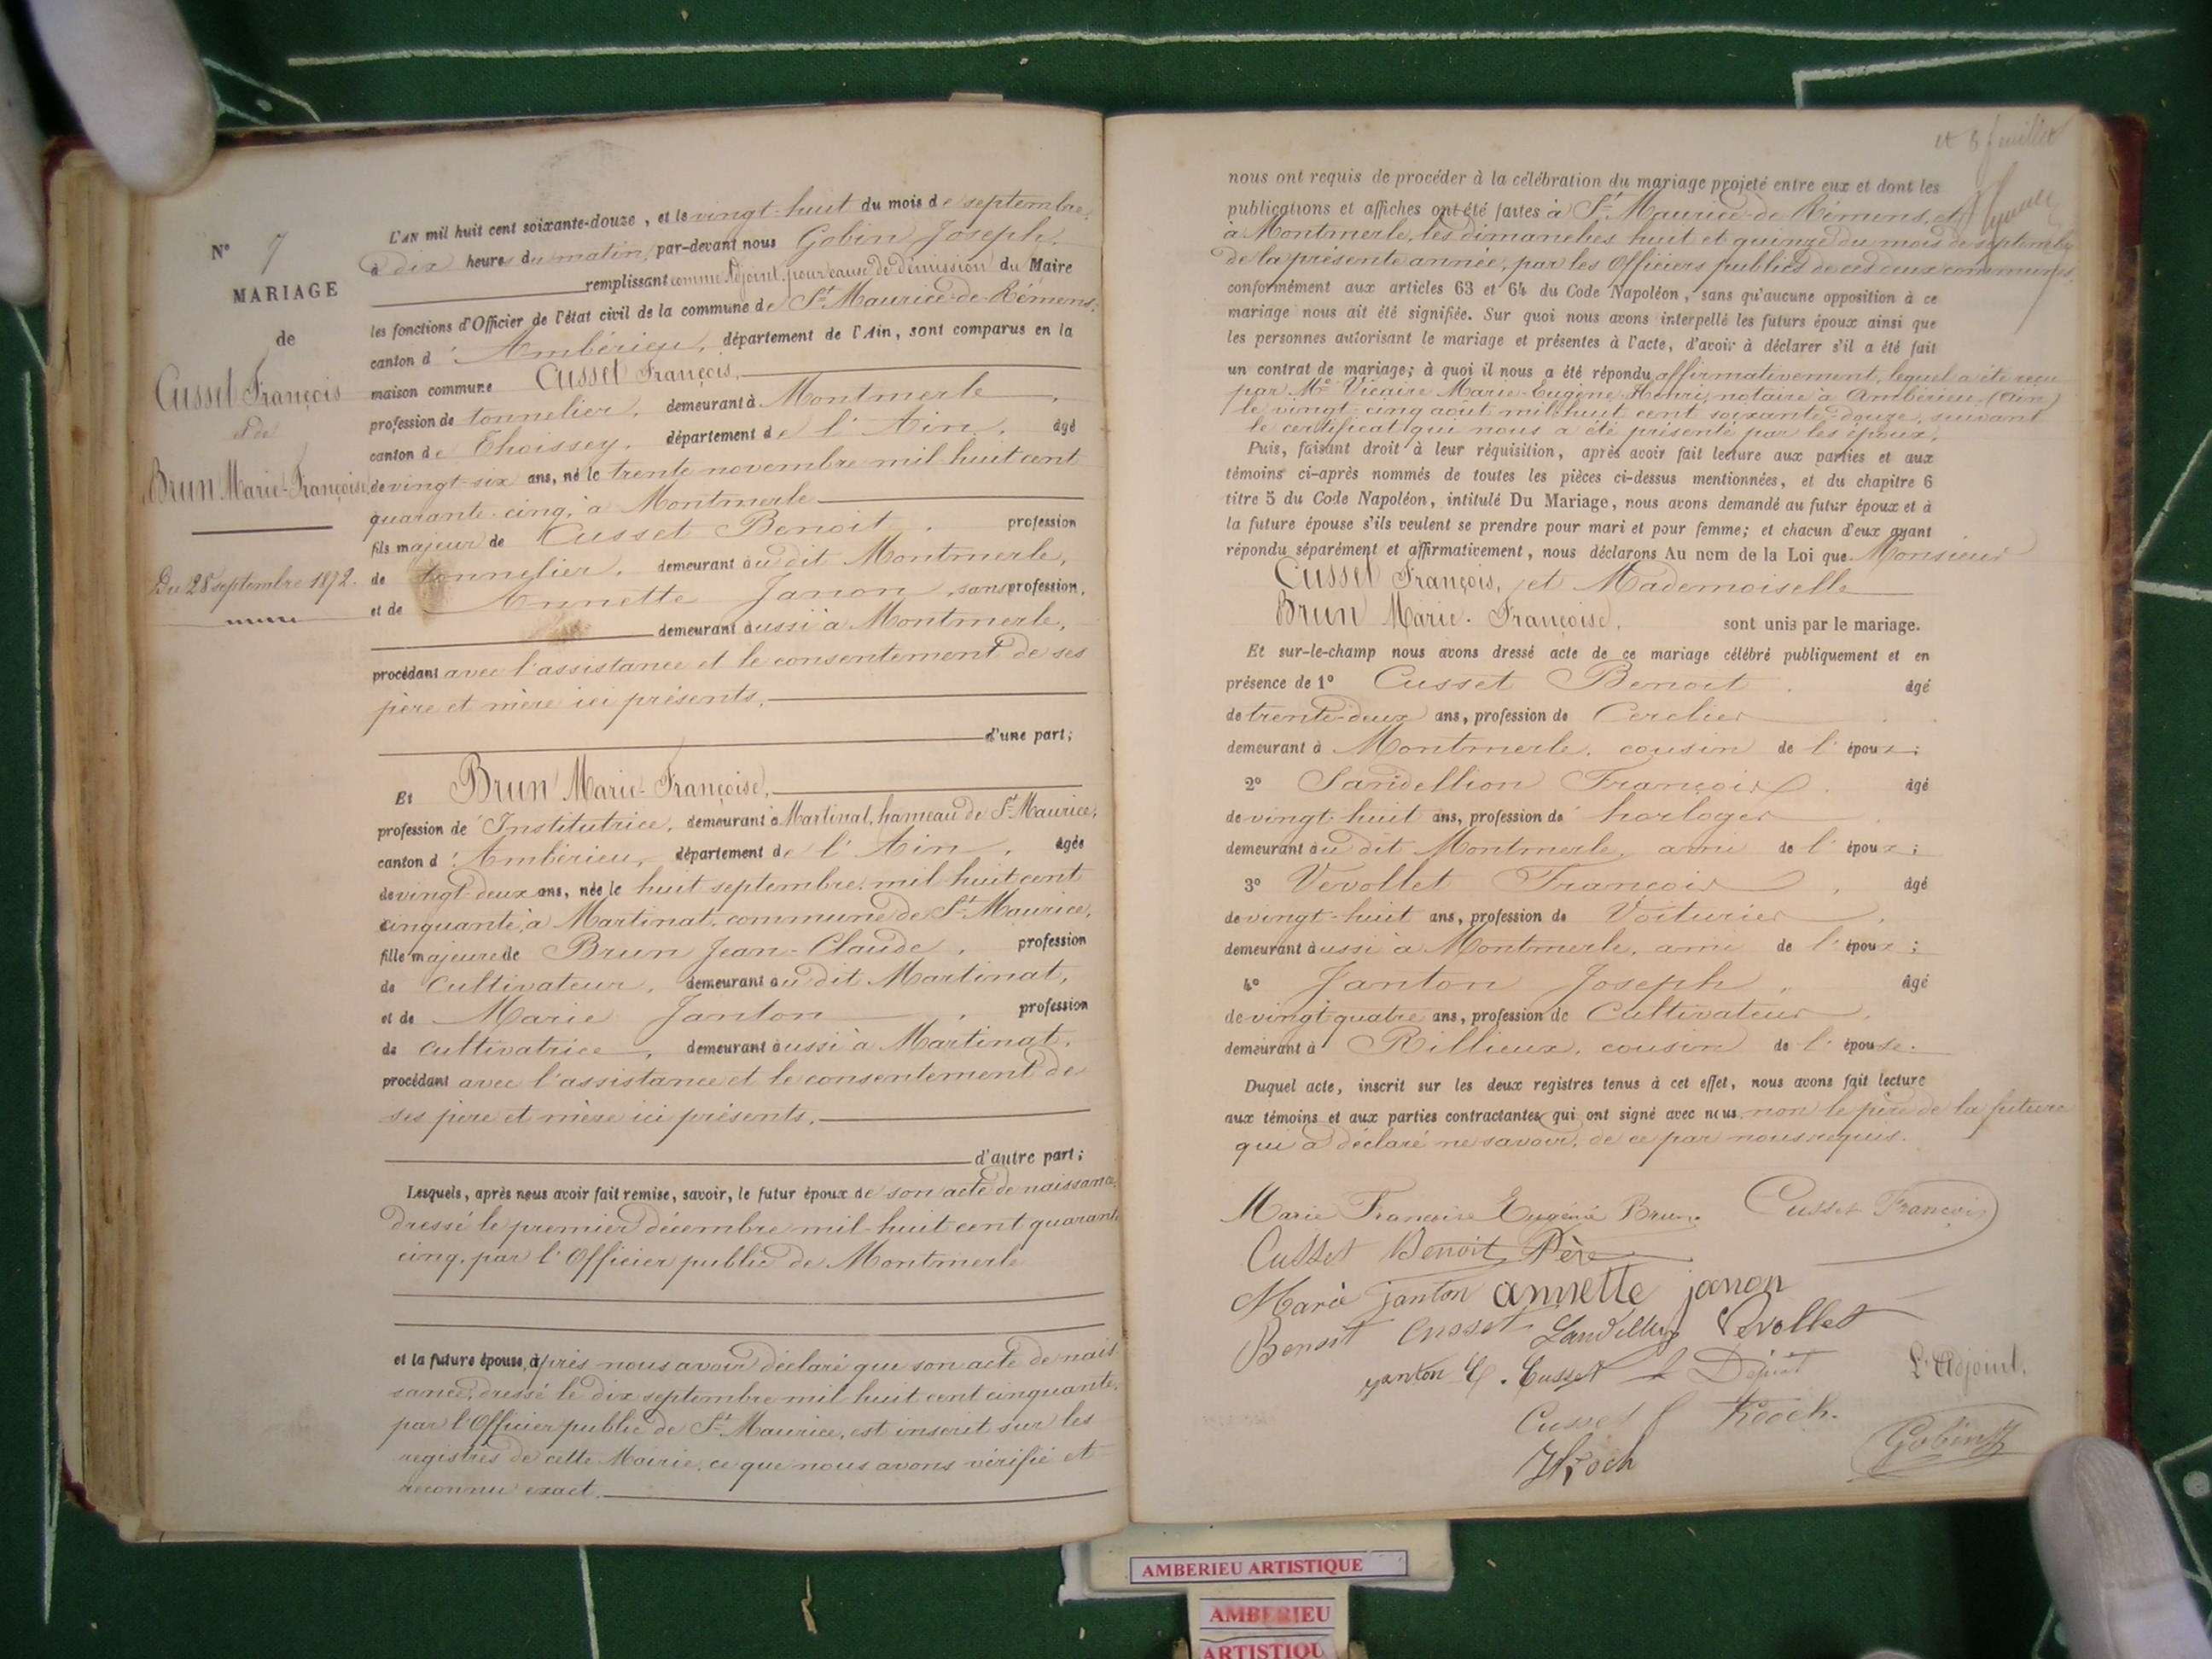 N° 7
MARIAGE
de
Cusset François
et de
Brun Marie-Françoise
Du 28 septembre 1872.
L'AN mil huit cent soixante-douze, et le vingt-huit du mois de septembre,
à dix heures du matin, par-devant nous Gobin Joseph,
remplissant comme Adjoint, pour cause de démission du Maire
les fonctions d'Officier de l'état civil de la commune de St Maurice-de-Rémens,
canton d'Ambérieu, département de l'Ain, sont comparus en la
maison commune Cusset François,
profession de tonnelier, demeurant à Montmerle,
canton de Thoissey, département de l'Ain, âgé
de vingt-six ans, né le trente novembre mil huit cent
quarante-cinq, à Montmerle
fils majeur de Cusset Benoit, profession
de tonnelier, demeurant au dit Montmerle,
et de Annette Janon, sans profession,
demeurant aussi à Montmerle,
procédant avec l'assistance et le consentement de ses
père et mère ici présents,
d'une part;
Et Brun Marie-Françoise,
profession de Institutrice, demeurant à Martinat, hameau de St Maurice,
canton d'Ambérieu, département de l'Ain, âgée
de vingt-deux ans, née le huit septembre mil huit cent
cinquante, à Martinat, commune de St Maurice,
fille majeure de Brun Jean-Claude, profession
de Cultivateur, demeurant au dit Martinat,
et de Marie Janton, profession
de cultivatrice, demeurant aussi à Martinat,
procédant avec l'assistance et le consentement de
ses père et mère ici présents,
d'autre part;
Lesquels, après nous avoir fait remise, savoir, le futur époux de son acte de naissance,
dressé le premier décembre mil huit cent quarante
cinq, par l'Officier public de Montmerle
et la future épouse, après nous avoir déclaré que son acte de nais
sance, dressé le dix septembre mil huit cent cinquante,
par l'Officier public de St Maurice, est inscrit sur les
registres de cette Mairie, ce que nous avons vérifié et
reconnu exact.
et 8 feuillet
nous ont requis de procéder à la célébration du mariage projeté entre eux et dont les
publications et affiches ont été faites à St Maurice-de-Rémens, et
à Montmerle, les dimanches huit et quinze du mois de septembre
de la présente année, par les Officiers publics de ces deux communes,
conformément aux articles 63 et 64 du Code Napoléon, sans qu'aucune opposition à ce
mariage nous ait été signifiée. Sur quoi nous avons interpellé les futurs époux ainsi que
les personnes autorisant le mariage et présentes à l'acte, d'avoir à déclarer s'il a été fait
un contrat de mariage; à quoi il nous a été répondu affirmativement, lequel a été reçu
par Me Vicaire Marie-Eugène-Henri, notaire à Ambérieu, (Ain)
le vingt-cinq août mil huit cent soixante-douze, suivant
le certificat qui nous a été présenté par les époux.
Puis, faisant droit à leur réquisition, après avoir fait lecture aux parties et aux
témoins ci-après nommés de toutes les pièces ci-dessus mentionnées, et du chapitre 6
titre 5 du Code Napoléon, intitulé Du Mariage, nous avons demandé au futur époux et à
la future épouse s'ils veulent se prendre pour mari et pour femme; et chacun d'eux ayant
répondu séparément et affirmativement, nous déclarons Au nom de la Loi que Monsieur
Cusset François, et Mademoiselle
Brun Marie-Françoise, sont unis par le mariage.
Et sur-le-champ nous avons dressé acte de ce mariage célébré publiquement et en
présence de 1° Cusset Benoit, âgé
de trente-deux ans, profession de Cerclier
demeurant à Montmerle, cousin de l'époux;
2° Sandellion François, âgé
de vingt-huit ans, profession de horloger
demeurant au dit Montmerle, ami de l'époux;
3° Vevollet François, âgé
de vingt-huit ans, profession de Voiturier,
demeurant aussi à Montmerle, ami de l'époux;
4° Janton Joseph, âgé
de vingt quatre ans, profession de Cultivateur,
demeurant à Rillieux, cousin de l'épouse.
Duquel acte, inscrit sur les deux registres tenus à cet effet, nous avons fait lecture
aux témoins et aux parties contractantes qui ont signé avec nous, non le père de la future
qui a déclaré ne savoir, de ce par nous requis.
Marie Françoise Eugénie Brun. Cusset François
Cusset Benoit Père
Marie janton annette janon
Benoit Cusset Vevollet
janton Cusset
L'Adjoint,
Cusset Kroch.
Gobin
Kroch
AMBERIEU ARTISTIQUE
AMBERIEU
ARTISTIQU